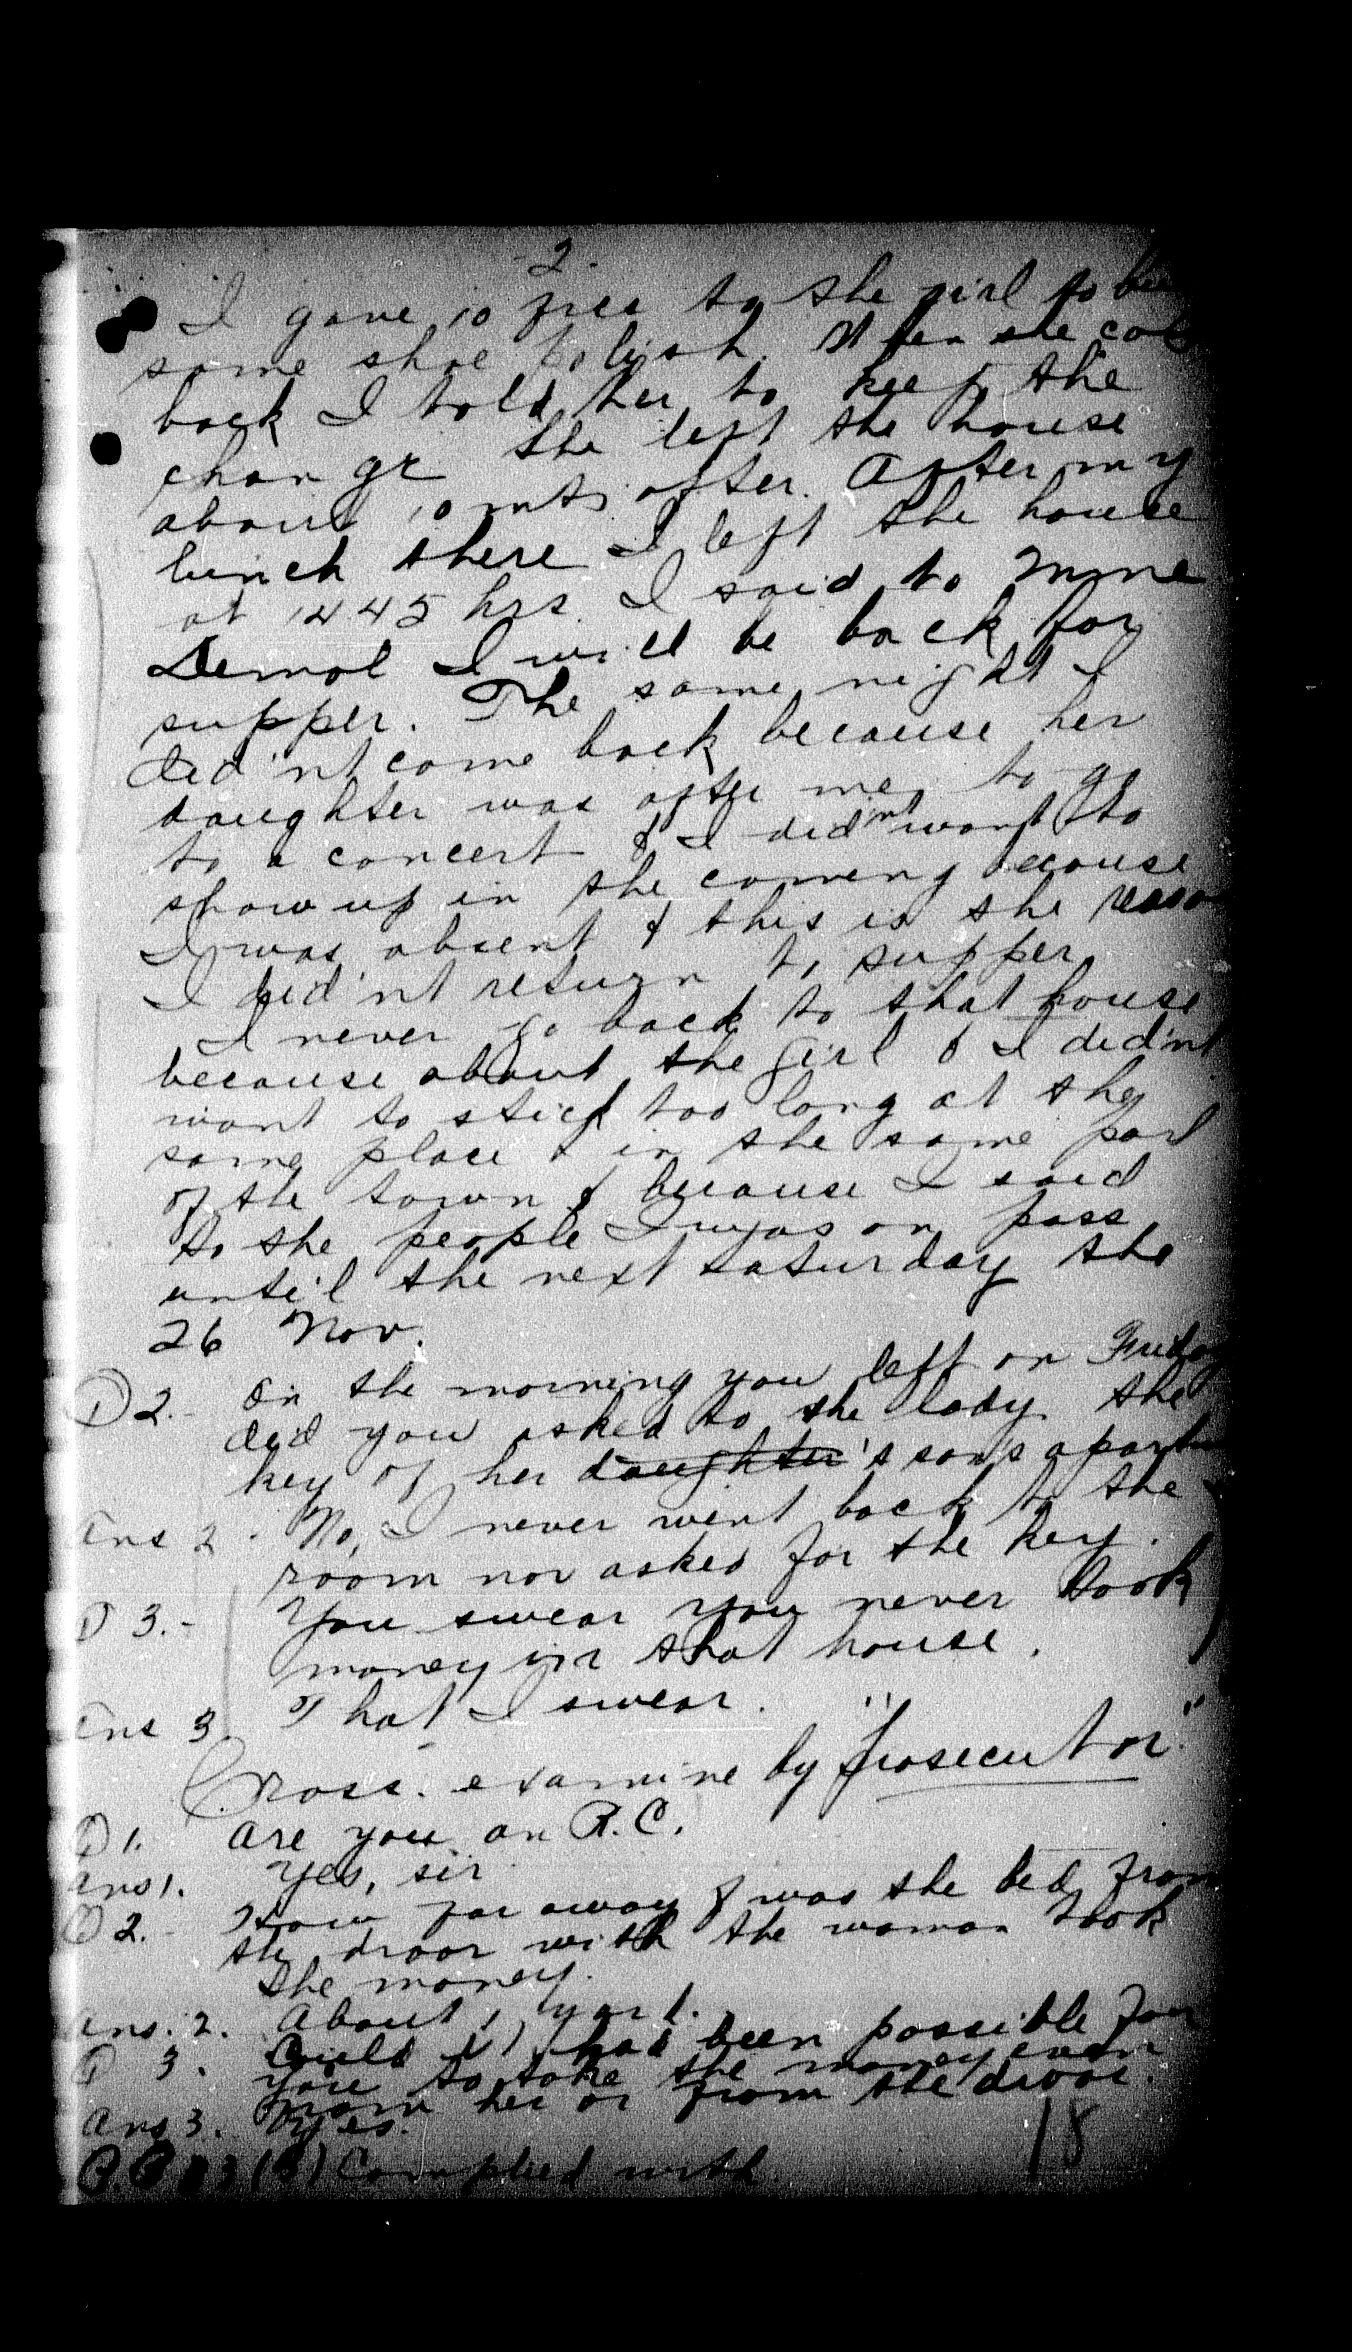 - 2 -
I gave 10 frcs to the girl to
some shoe polish. When she
back I told her to keep the
change she left the house
about 10 mts after. After my
lunch there I left the house
at 1245 hrs I said to Mme
Demol I will be back for
supper. The same night I
did'nt come back because her
daughter was after me to go
to a concert & I didn't want to
show up in the coming because
I was absent & this is the reason
I did'nt return to supper
I never go back to that house
because about the girl & I did'nt
want to stick too long at the
same place & in the same part
of the town & because I said
to the people I was on pass
until the next saturday the
26 Nov.
Q 2. - On the morning you left on Friday
did you asked to the lady the
key of her daughter's son's
Ans 2 - No, I never went back to the
room nor asked for the key.
Q 3. - You swear you never took
money in that house.
Ans 3. That I swear.
Cross. examine by "Prosecutor"
Q 1. Are you an R.C.
Ans 1. Yes, sir
Q 2. - How far away & was the bed from
the droor with the woman took
the money.
Ans. 2. About 1 yard.
Q 3. Could it had been possible for
you to take the money even
from her or from the droor.
Ans 3. Yes.
R.P 83 (B) Complied with.
18